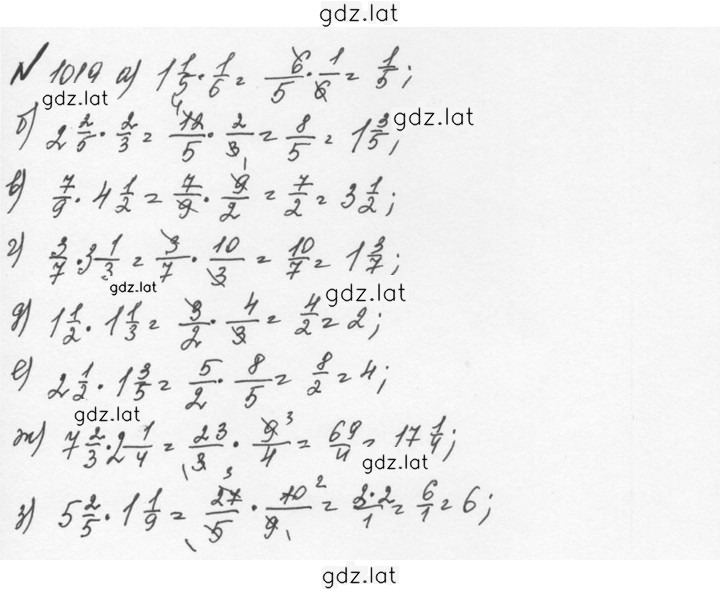 gdz.lat
№ 1019 а) 1 1/5 · 1/6 = 6/5 · 1/6 = 1/5;
gdz.lat
б) 2 2/5 · 2/3 = 12/5 · 2/3 = 8/5 = 1 3/5;
gdz.lat
в) 7/9 · 4 1/2 = 7/9 · 9/2 = 7/2 = 3 1/2;
г) 3/7 · 3 1/3 = 3/7 · 10/3 = 10/7 = 1 3/7;
gdz.lat
gdz.lat
д) 1 1/2 · 1 1/3 = 3/2 · 4/3 = 4/2 = 2;
е) 2 1/2 · 1 3/5 = 5/2 · 8/5 = 8/2 = 4;
gdz.lat
ж) 7 2/3 · 2 1/4 = 23/3 · 9/4 = 69/4 = 17 1/4;
gdz.lat
з) 5 2/5 · 1 1/9 = 27/5 · 10/9 = 3·2/1 = 6/1 = 6;
gdz.lat